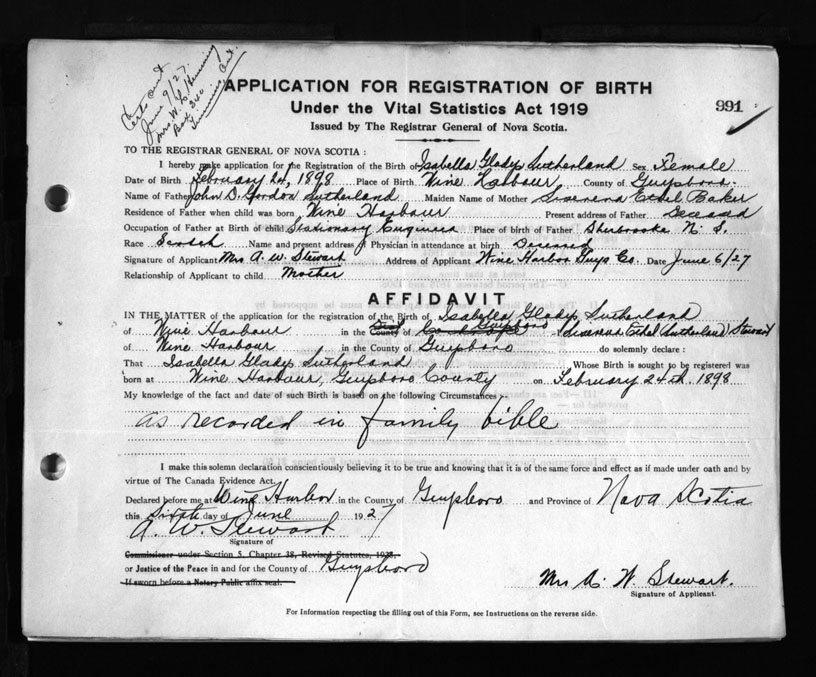 Cert out
June 9/27.
Mrs W. C. Henning
Box 240
Timmins Ont.
APPLICATION FOR REGISTRATION OF BIRTH
Under the Vital Statistics Act 1919
991
Issued by The Registrar General of Nova Scotia.
TO THE REGISTRAR GENERAL OF NOVA SCOTIA :
I hereby make application for the Registration of the Birth of Isabella Gladys Sutherland Sex Female
Date of Birth February 24, 1898 Place of Birth Wine Harbour, County of Guysboro.
Name of Father John D. Gordon Sutherland Maiden Name of Mother Ethel Baker
Residence of Father when child was born Wine Harbour Present address of Father Deceased
Occupation of Father at Birth of child Stationary Engineer Place of birth of Father Sherbrooke N. S.
Race Scotch Name and present address of Physician in attendance at birth Deceased
Signature of Applicant Mrs A. W. Stewart Address of Applicant Wine Harbor Guys Co. Date June 6/27
Relationship of Applicant to child Mother
AFFIDAVIT
IN THE MATTER of the application for the registration of the Birth of Isabella Gladys Sutherland
of Wine Harbour in the County of Guysboro I Ethel (Sutherland) Stewart
of Wine Harbour in the County of Guysboro do solemnly declare :
That Isabella Gladys Sutherland Whose Birth is sought to be registered was
born at Wine Harbour, Guysboro County on February 24th. 1898
My knowledge of the fact and date of such Birth is based on the following Circumstances :-
as recorded in family bible
I make this solemn declaration conscientiously believing it to be true and knowing that it is of the same force and effect as if made under oath and by
virtue of The Canada Evidence Act.
Declared before me at Wine Harbor in the County of Guysboro and Province of Nova Scotia
this Sixth day of June 1927
A. W. Stewart
Signature of
Commissioner under Section 5, Chapter 38, Revised Statutes, 1923.
or Justice of the Peace in and for the County of Guysboro
If sworn before a Notary Public affix seal.
Mrs A. W. Stewart.
Signature of Applicant.
For Information respecting the filling out of this Form, see Instructions on the reverse side.